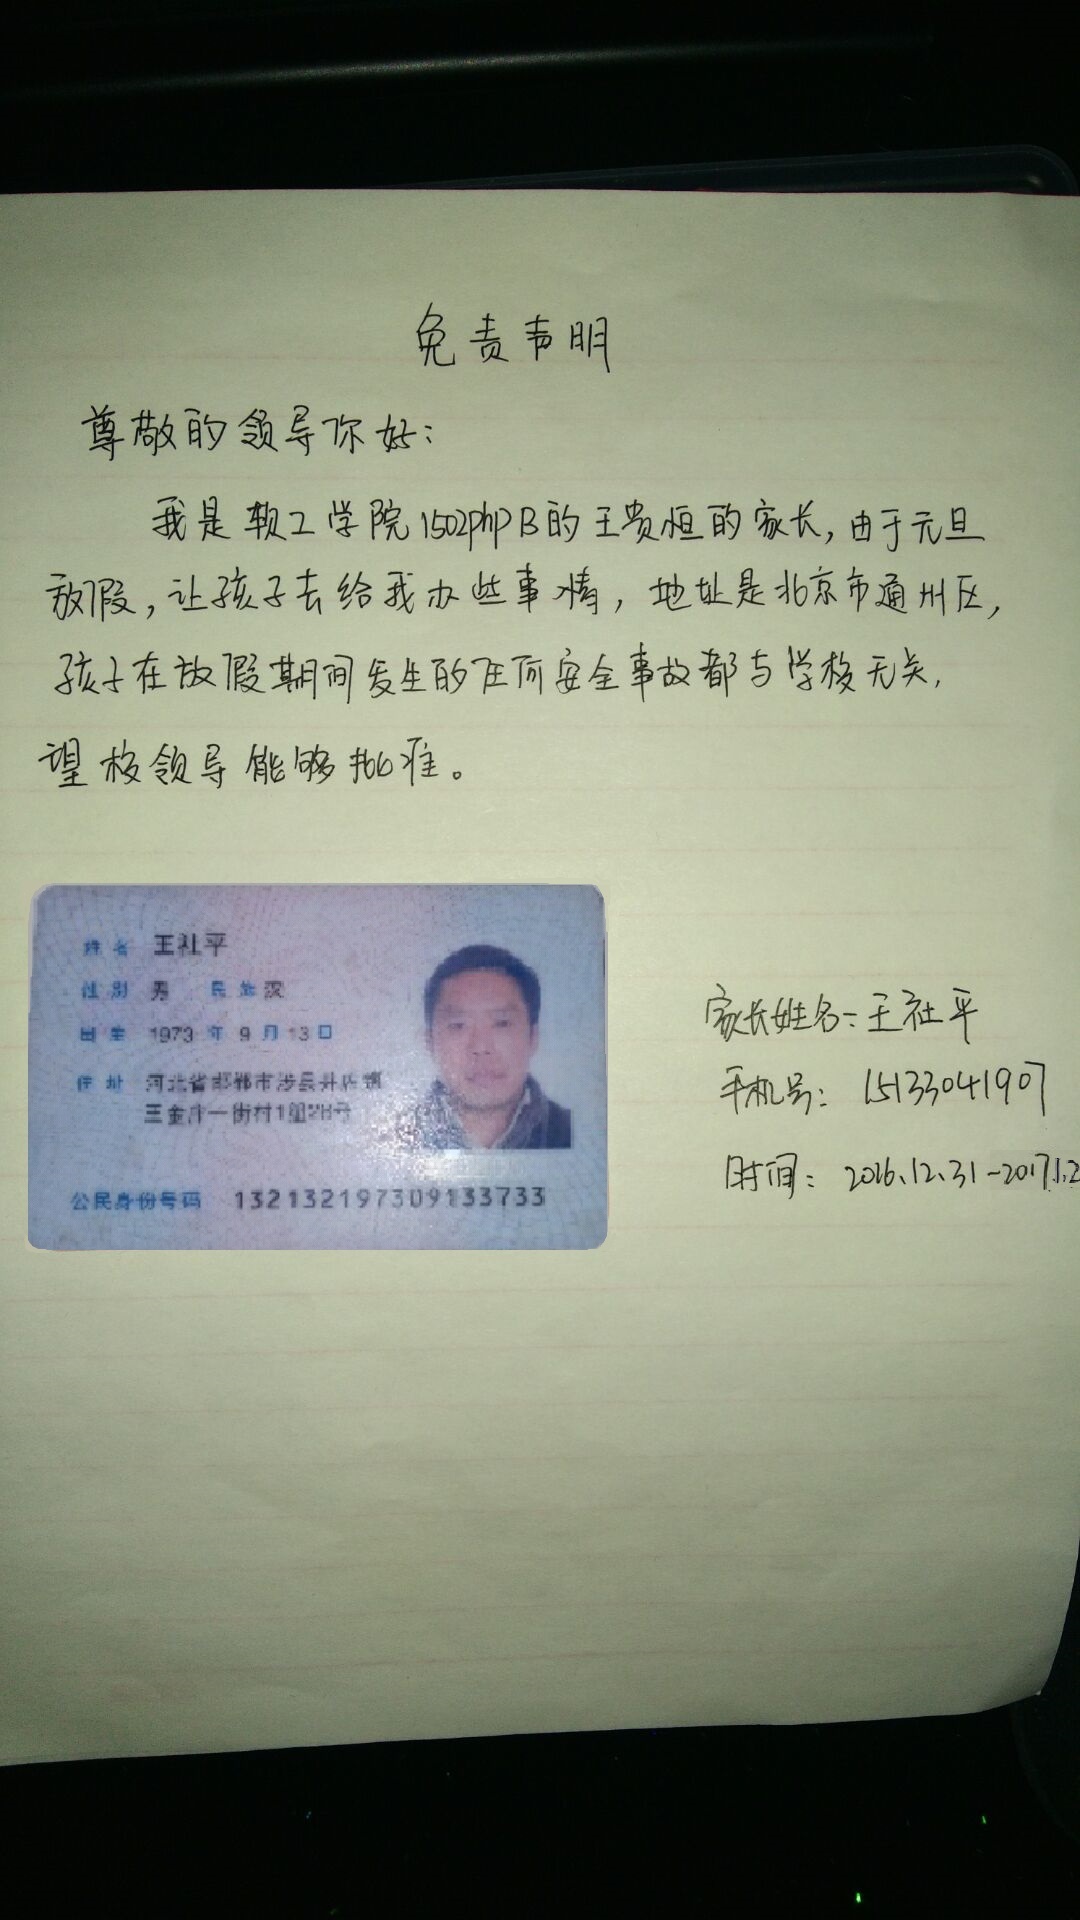 免责声明
尊敬的领导你好：
我是软工学院1502phpB的王贵恒的家长，由于元旦
放假，让孩子去给我办些事情，地址是北京市通州区，
孩子在放假期间发生的任何安全事故都与学校无关，
望校领导能够批准。
姓名 王社平
性别 男 民族 汉
出生 1973 年 9 月 13 日
住址 河北省邯郸市涉县井店镇
三金庄一街村1组28号
公民身份号码 132132197309133733
家长姓名：王社平
手机号：15133041907
时间：2016.12.31-2017.1.2